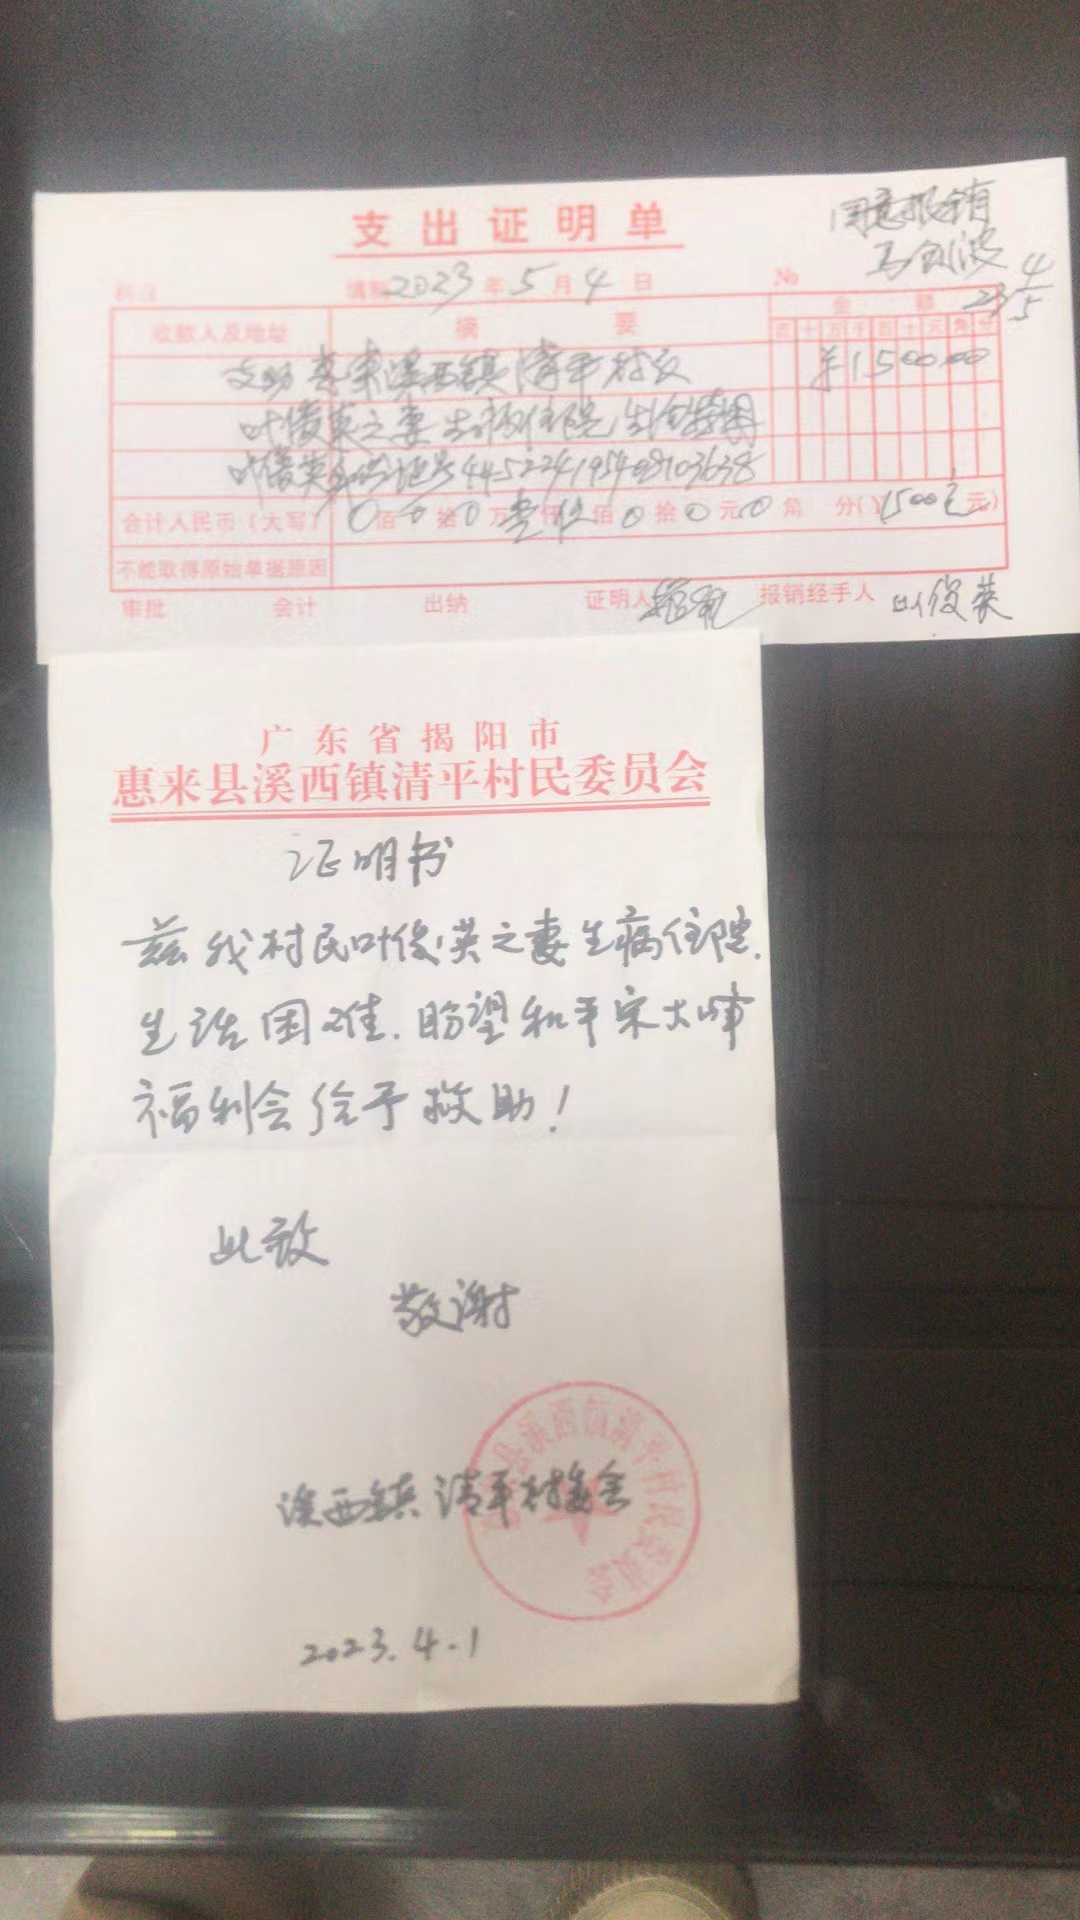 支出证明单
同意报销
科目 填制2023年5月4日 No
23 4/5
收款人及地址 摘要 金额
百十万千百十元角分
支助惠来溪西镇清平村民 ¥150000
叶俊英之妻生病住院生活费用
叶俊英身份证号
合计人民币（大写）0佰0拾0万壹仟伍佰0拾0元0角 分( )1500元元)
不能取得原始单据原因
审批 会计 出纳 证明人 报销经手人 叶俊英
广东省揭阳市
惠来县溪西镇清平村民委员会
证明书
兹我村民叶俊英之妻生病住院.
生活困难.盼望和平宋大峰
福利会给予救助！
此致
敬谢
溪西镇清平村委会
2023.4.1